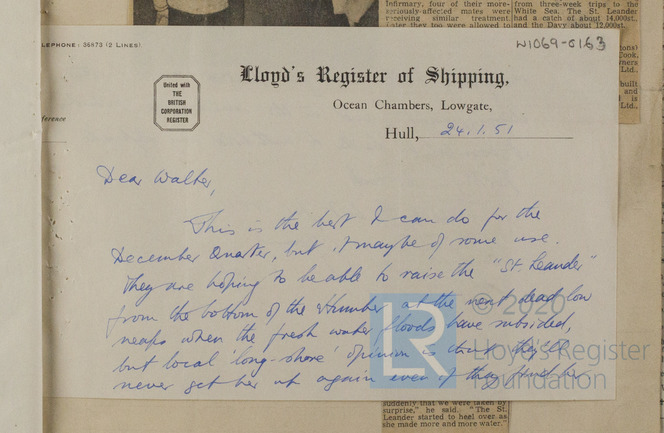 Infirmary, four of their more-
seriously-affected mates were
receiving similar treatment.
Later they too were allowed to
from three-week trips to the
White Sea. The St. Leander
had a catch of about 14,000st.
and the Davy about 12,000st.
tons)
Cook,
wners
Ltd.,
built
and
is
Ltd.,
W1069-0163
LEPHONE: 36873 (2 LINES)
ference
United with
THE
BRITISH
CORPORATION
REGISTER
Lloyd's Register of Shipping,
Ocean Chambers, Lowgate,
Hull, 24.1.51
Dear Walter,
This is the best I can do for the
December Quarter, but it maybe of some use.
They are hoping to be able to raise the "St. Leander"
from the bottom of the Humber at the next dead low
neaps when the fresh water floods have subsided,
but local 'long-shore' opinion is that they'll
never get her up again even if they find her
LR
© 2020
Lloyd's Register
Foundation
suddenly that we were taken by
surprise," he said. "The St.
Leander started to heel over as
she made more and more water."